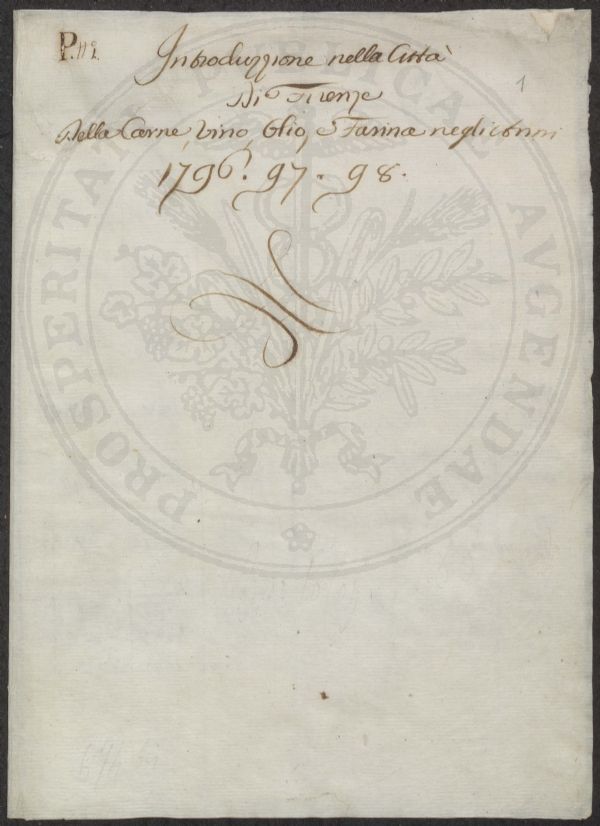 P. 112.
1
Introduzzione nella Città
Di Firenze
Della Carne, Vino, Olio, e Farina negli anni
1796. 97. 98.
PROSPERITATI PUBLICAE AVGENDAE